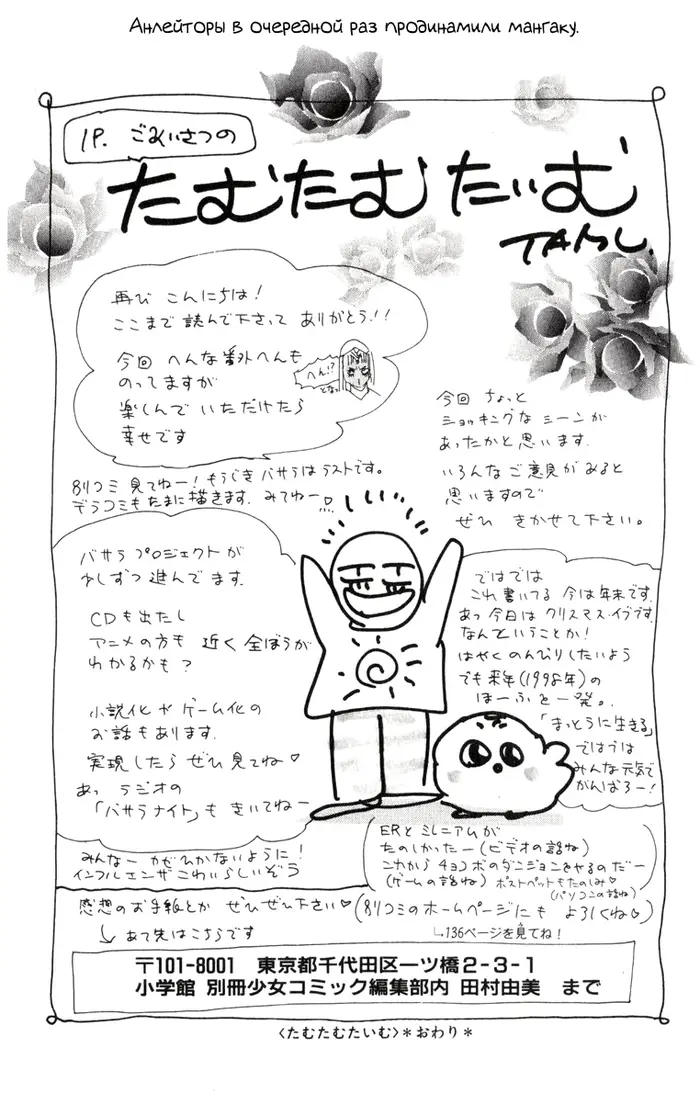 Анлейторы в очередной раз продинамили мангаку.
1P. ごあいさつの
たむたむたいむ
TAMU.
再び こんにちは!
ここまで 読んで下さって ありがとう!!
今回 へんな番外へんも
のってますが
楽しんで いただけたら
幸せです
へん!?
となっ
今回 ちょっと
ショッキングな シーンが
あったかと 思います。
いろんな ご意見が あると
思いますので
ぜひ きかせて下さい。
別コミ 見てねー!もうじき バサラは ラストです。
デラコミもたまに描きます。みてねー♡
バサラ プロジェクトが
少しずつ 進んでます。
CDも出たし
アニメの方も 近く 全ぼうが
わかるかも?
小説化や ゲーム化の
お話もあります。
実現したら ぜひ見てね♡
あっ ラジオの
「バサラナイト」も きいてねー
ではでは
これ書いてる 今は年末です。
あっ 今日は クリスマス・イブです。
なんということか!
はやく のんびりしたいよう
でも 来年(1998年)の
ほーふを一発。
「まっとうに生きる」
ではでは
みんな元気で
がんばろー!
みんなー かぜひかないように!
インフルエンザ こわいらしいぞう
ERと ミレニアムが
たのしかったー(ビデオの話ね)
これから チョコボのダンジョンをやるのだー
(ゲームの話ね) ポストペットもたのしみ♡
(パソコンの話ね)
感想のお手紙とか ぜひぜひ下さい♡
(別コミのホームページにも よろしくね♡)
↳136ページを見てね!
↳ あて先はこちらです
〒101-8001 東京都千代田区一ツ橋2-3-1
小学館 別冊少女コミック編集部内 田村由美 まで
〈たむたむたいむ〉*おわり*